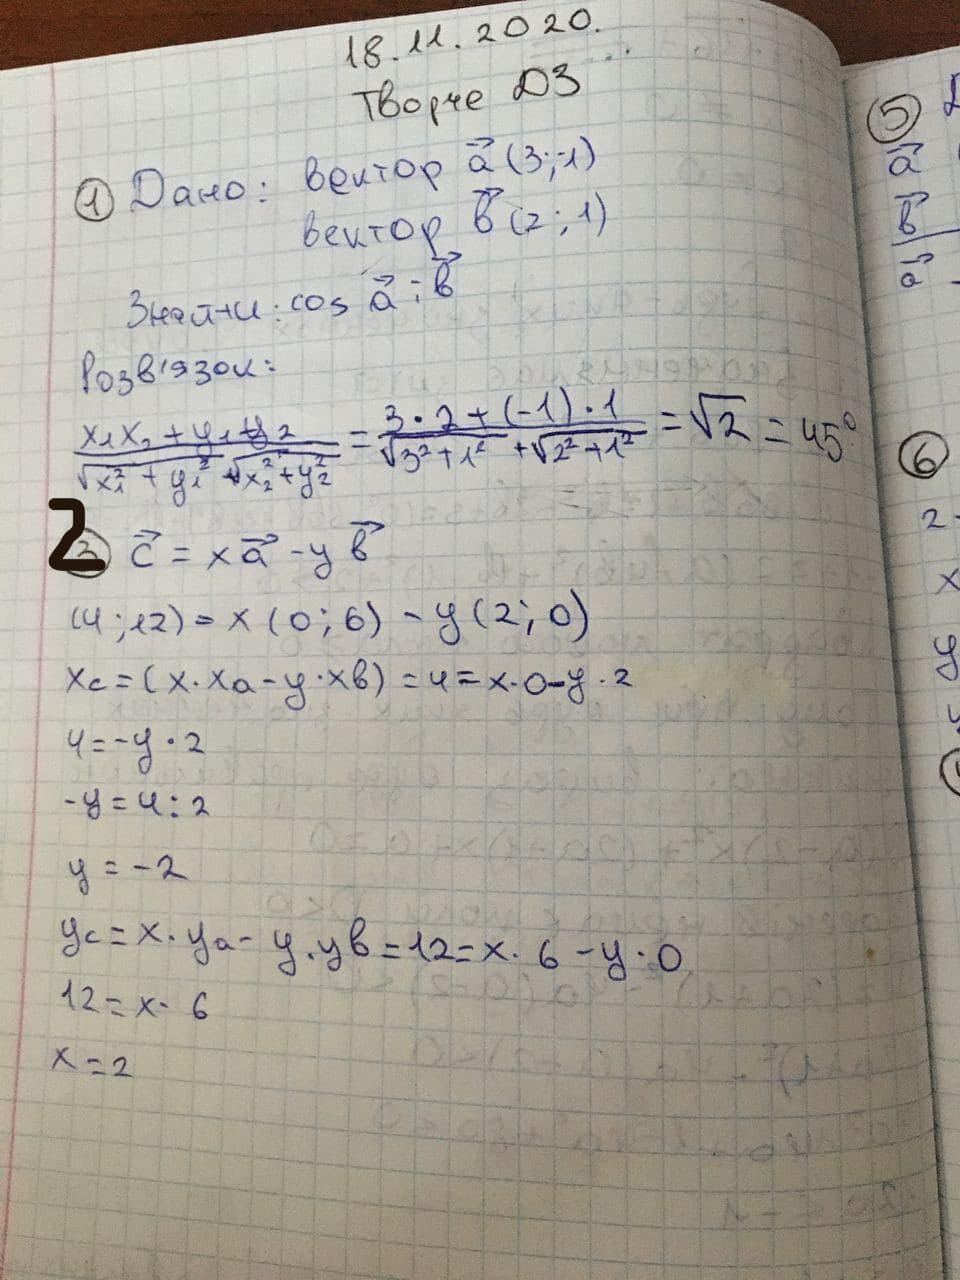 18.11.2020.
Творче ДЗ
① Дано: вектор a⃗ (3;-1)
вектор b⃗ (2;1)
Знайти: cos a⃗ ; b⃗
Розв'язок:
(x₁x₂ + y₁+y₂)/(√(x₁² + y₁²) + √(x₂²+y₂²)) = (3·2+(-1)·1)/(√(3²+1²) +√(2²+1²)) = √2 = 45°
2 c⃗ = x a⃗ - y b⃗
(4;12) = x (0;6) - y (2;0)
xc = (x·xa - y·xb) = 4 = x·0-y·2
4=-y·2
-y=4:2
y = -2
yc = x·ya - y·yb = 12 = x·6 - y·0
12 = x·6
x = 2
⑤
a⃗
b⃗
a⃗ -
⑥
2-
x
y